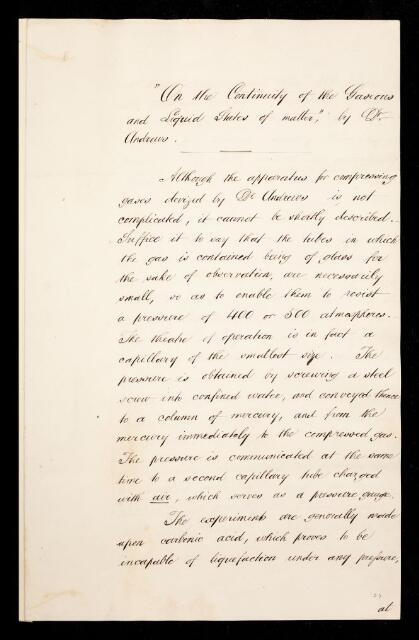 "On the Continuity of the Gaseous
and Liquid States of matter," by Dr.
Andrews.
Although the apparatus for compressing
gases devized by Dr Andrews is not
complicated, it cannot be shortly described.
Suffice it to say that the tubes in which
the gas is contained being of glass for
the sake of observation, are necessarily
small, so as to enable them to resist
a pressure of 400 or 500 atmospheres.
The theatre of operation is in fact a
capillary of the smallest size. The
pressure is obtained by screwing a steel
screw into confined water, and conveyed thence
to a column of mercury, and from the
mercury immediately to the compressed gas.
The pressure is communicated at the same
time to a second capillary tube charged
with air, which serves as a pressure gauge.
The experiments are generally made
upon carbonic acid, which proves to be
incapable of liquefaction under any pressure,
at